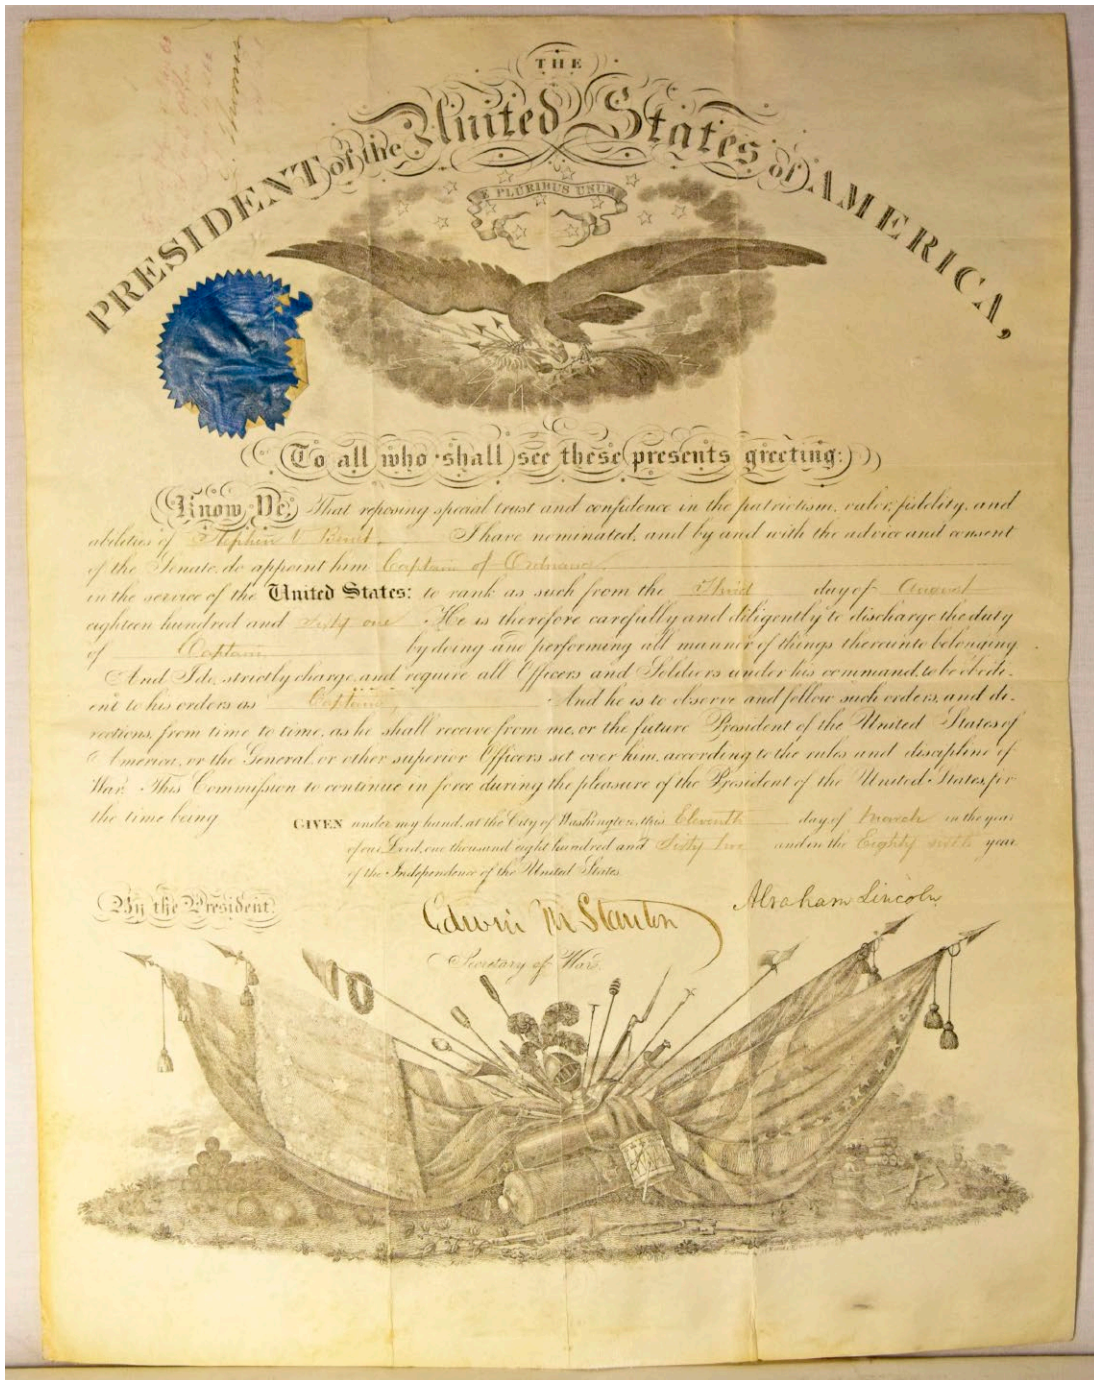 THE
PRESIDENT of the United States of AMERICA,
E PLURIBUS UNUM
To all who shall see these presents greeting:
Know Ye, That reposing special trust and confidence in the patriotism, valor, fidelity, and
abilities of Stephen V Benét. I have nominated, and by and with the advice and consent
of the Senate, do appoint him Captain of Ordnance.
in the service of the United States: to rank as such from the Third day of August
eighteen hundred and Sixty one. He is therefore carefully and diligently to discharge the duty
of Captain, by doing and performing all manner of things thereunto belonging.
And I do, strictly charge, and require all Officers and Soldiers under his command, to be obedi-
ent to his orders as Captain, And he is to observe and follow such orders, and di-
rections, from time to time, as he shall receive from me, or the future President of the United States of
America, or the General, or other superior Officers set over him, according to the rules and discipline of
War. This Commission to continue in force during the pleasure of the President of the United States, for
the time being
GIVEN under my hand, at the City of Washington, this Eleventh day of March in the year
of our Lord, one thousand eight hundred and Sixty two and in the Eighty sixth year
of the Independence of the United States
By the President.
Abraham Lincoln
Edwin M Stanton
Secretary of War.